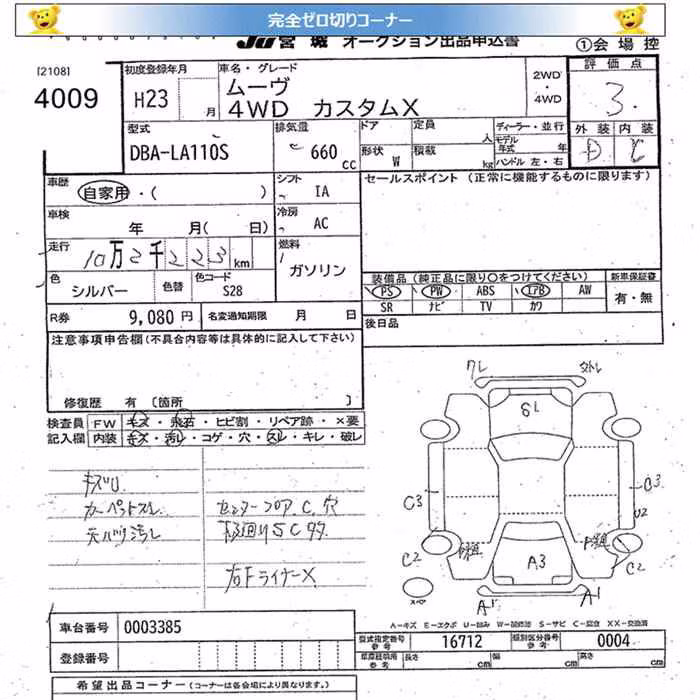 完全ゼロ切りコーナー
JU宮城 オークション出品申込書 ①会場控
[2108]
4009
初度登録年月
H23 月
車名・グレード
ムーヴ
4WD カスタムX
2WD
・
4WD
評価点
3.
外装 内装
D C
型式
DBA-LA110S
排気量
660 cc
ドア 定員 人
形状 W 積載 kg
ディーラー・並行
モデル年式 年
ハンドル 左・右
車歴
自家用・( )
シフト
IA
セールスポイント (正常に機能するものに限ります)
車検
年 月( 日)
冷房
AC
走行
10万2千223km
燃料
ガソリン
色
シルバー
色替
色コード
S28
装備品 (純正品に限り○をつけてください)
新車保証書
PS PW ABS エアB AW
SR ナビ TV カワ
有・無
R券 9,080円
名変通知期限 月 日
後日品
注意事項申告欄(不具合内容等は具体的に記入して下さい)
修復歴 有 [箇所 ]
検査員 FW キズ・飛石・ヒビ割・リペア跡・×要
記入欄 内装 キズ・汚れ・コゲ・穴・スレ・キレ・破レ
ワレ
外レ
S1
C3
C3
U2
C2
C2
A3
A1
A1
キズU
カーペットスレ
天バリ汚レ
センターフロアC、穴
右FライナーX
A-キズ E-エクボ U-凹み W-補修濃 S-サビ C-腐食 XX-交換済
車台番号 0003385
登録番号
型式指定番号
参考
16712
類別区分番号
参考
0004
車庫証明用
参考
長さ cm
幅 cm
高さ cm
希望出品コーナー (コーナーは各会場により異なります。)